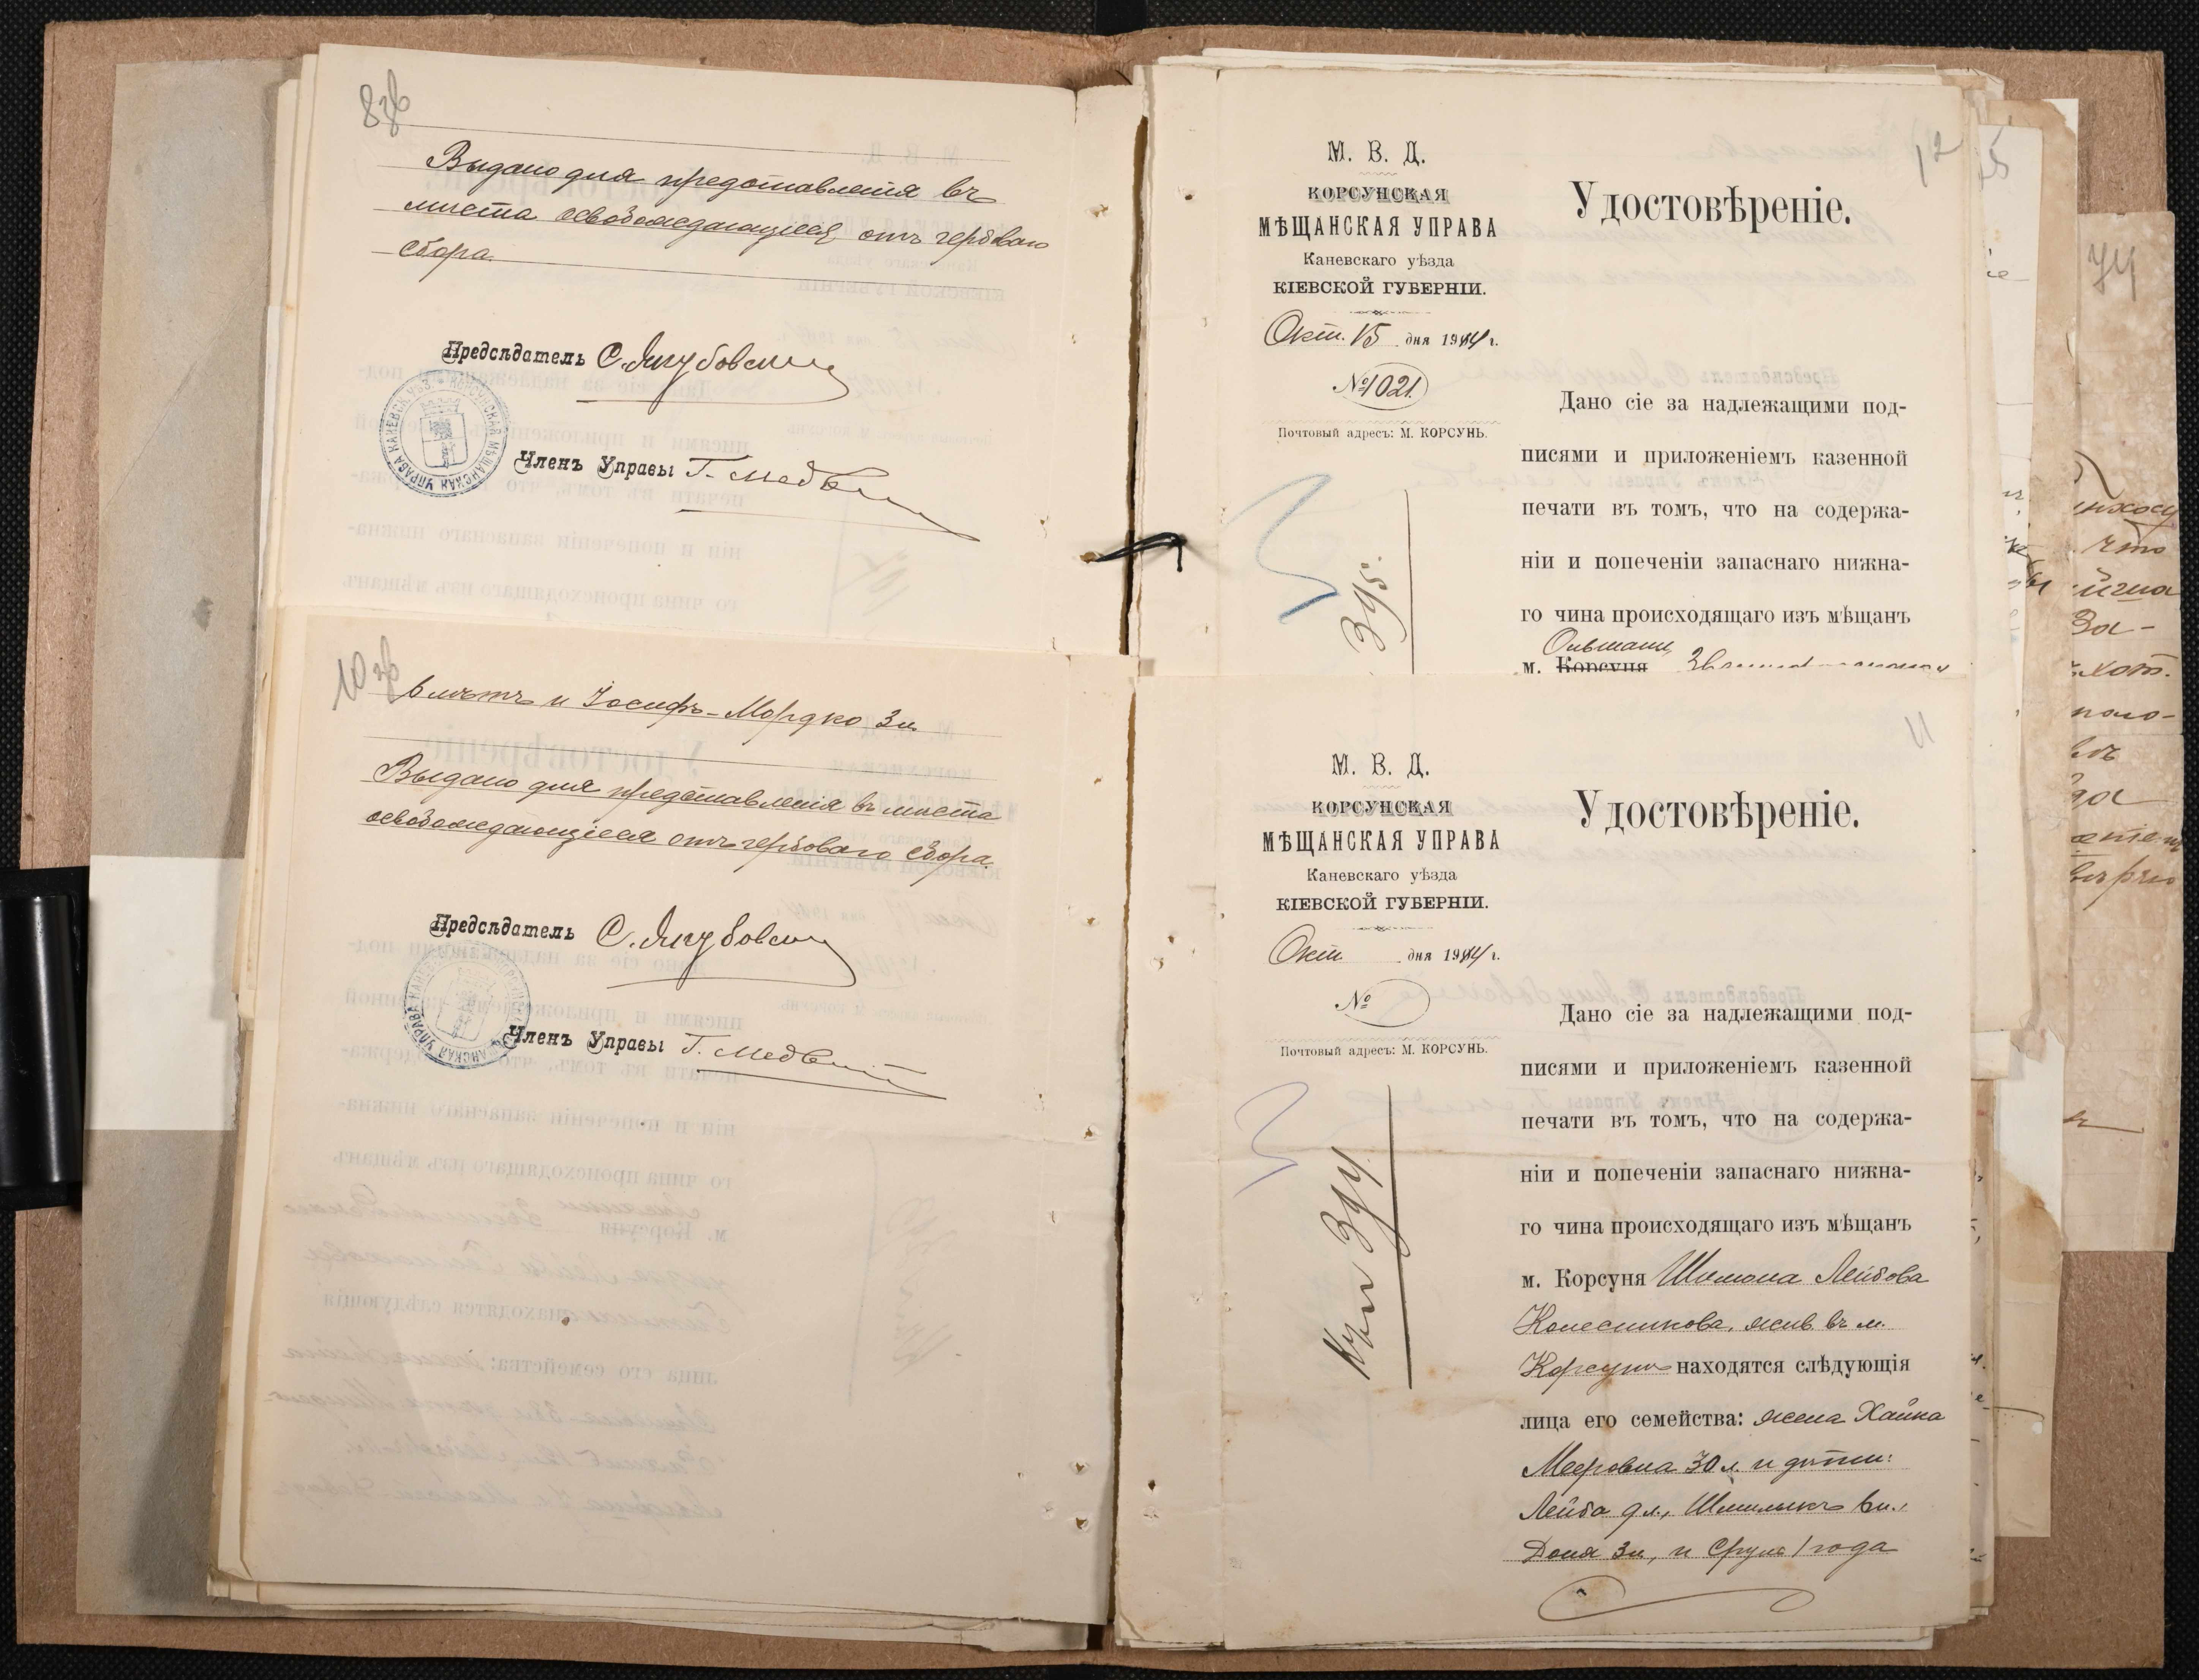 8 зв
Выдано для представленія въ
мѣста освобождающіеся отъ гербоваго
сбора
Предсѣдатель С. Якубовскій
Членъ Управы Г. Медв
КОРСУНСКАЯ МѢЩАНСКАЯ УПРАВА КАНЕВСК. УѢЗ.
10 зв
6 лѣтъ и Іосифъ-Мордко 3 л.
Выдано для представленія въ мѣста
освобождающіеся отъ гербоваго сбора.
Предсѣдатель С. Якубовскій
Членъ Управы Г. Медв
12
М. В. Д.
КОРСУНСКАЯ
МѢЩАНСКАЯ УПРАВА
Каневскаго уѣзда
КІЕВСКОЙ ГУБЕРНІИ.
Окт. 15 дня 1914 г.
№ 1021.
Почтовый адресъ: М. КОРСУНЬ.
Удостовѣреніе.
Дано сіе за надлежащими под-
писями и приложеніемъ казенной
печати въ томъ, что на содержа-
ніи и попеченіи запаснаго нижна-
го чина происходящаго изъ мѣщанъ
Ольшани
м. Корсуня
11
М. В. Д.
КОРСУНСКАЯ
МѢЩАНСКАЯ УПРАВА
Каневскаго уѣзда
КІЕВСКОЙ ГУБЕРНІИ.
Окт дня 1914 г.
№
Почтовый адресъ: М. КОРСУНЬ.
Удостовѣреніе.
Дано сіе за надлежащими под-
писями и приложеніемъ казенной
печати въ томъ, что на содержа-
ніи и попеченіи запаснаго нижна-
го чина происходящаго изъ мѣщанъ
м. Корсуня Шимона Лейбова
Колесникова, жив. въ м.
Корсунь находятся слѣдующія
лица его семейства: жена Хайка
Мееровна 30 л. и дѣти:
Лейба 9 л., Шмилыкъ 6 л.,
Доня 3 л, и Сруль 1 года
74
что
За-